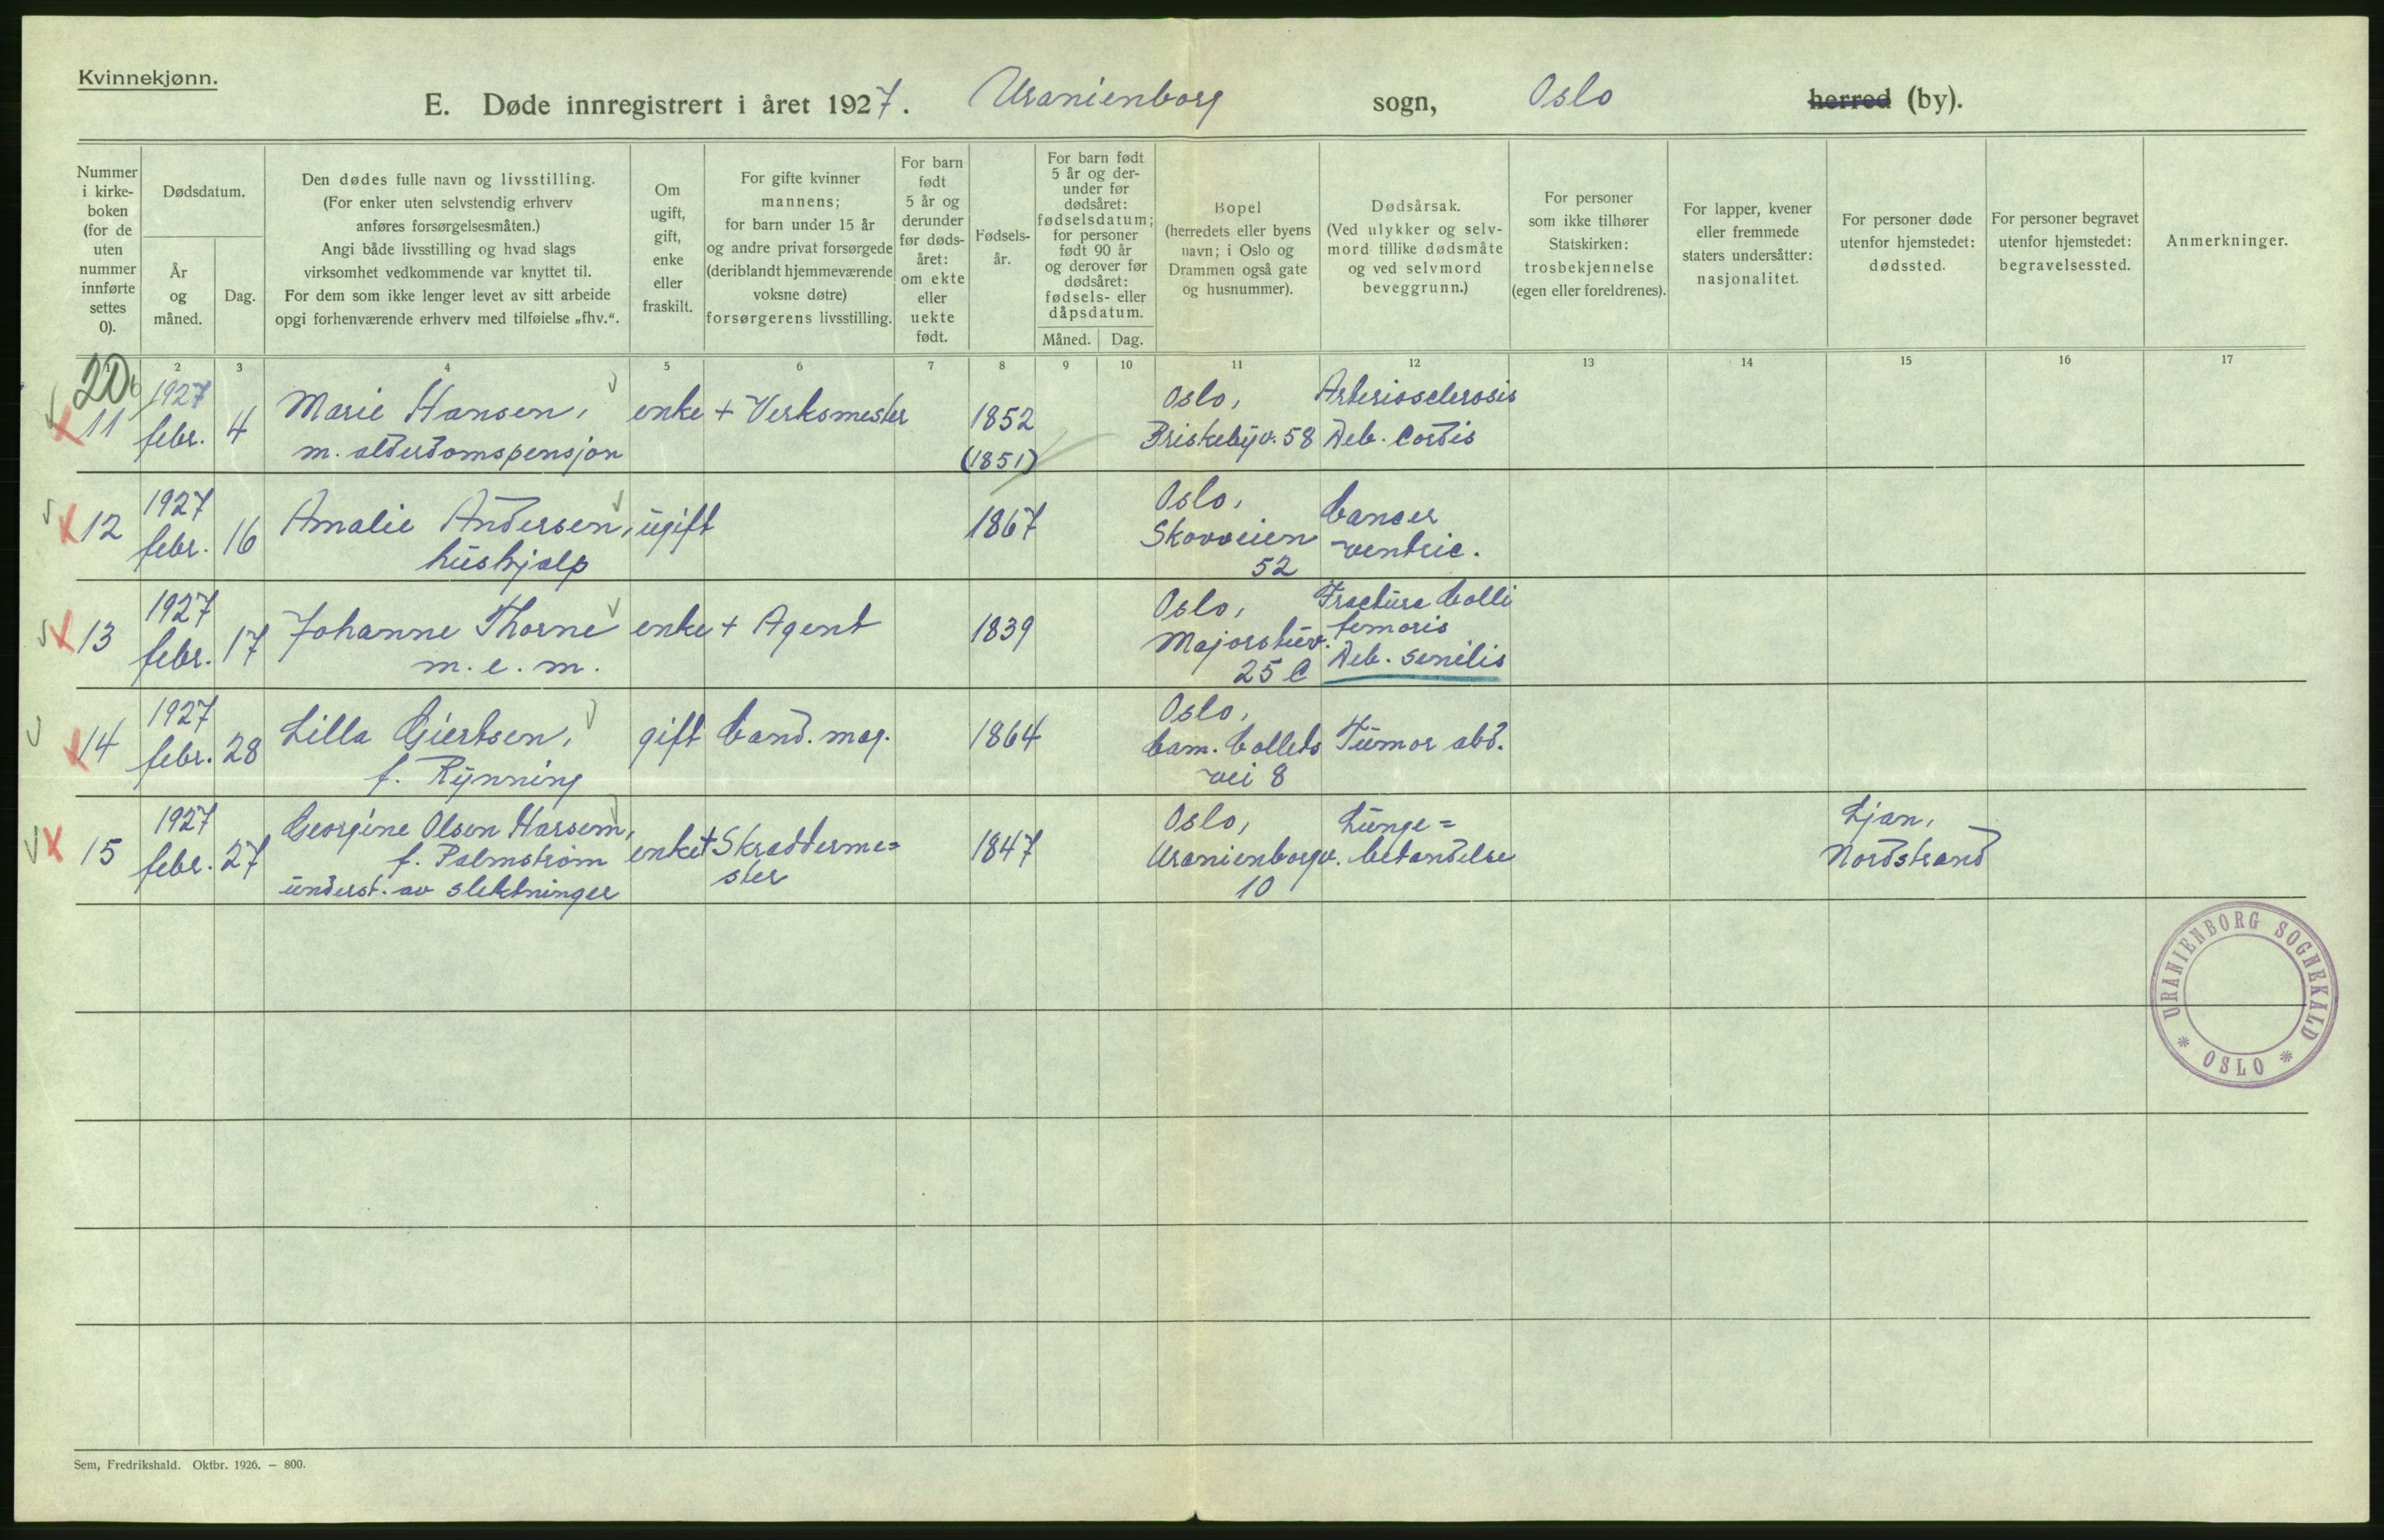 Kvinnekjønn.
E. Døde innregistrert i året 1927. Uranienborg sogn, Oslo herred (by).
Nummer
i kirke-
boken
(for de
uten
nummer
innførte
settes
0).
Dødsdatum.
År
og
måned.
Dag.
Den dødes fulle navn og livsstilling.
(For enker uten selvstendig erhverv
anføres forsørgelsesmåten.)
Angi både livsstilling og hvad slags
virksomhet vedkommende var knyttet til.
For dem som ikke lenger levet av sitt arbeide
opgi forhenværende erhverv med tilføielse „fhv.“.
Om
ugift,
gift,
enke
eller
fraskilt.
For gifte kvinner
mannens;
for barn under 15 år
og andre privat forsørgede
(deriblandt hjemmeværende
voksne døtre)
forsørgerens livsstilling.
For barn
født
5 år og
derunder
før døds-
året:
om ekte
eller
uekte
født.
Fødsels-
år.
For barn født
5 år og der-
under før
dødsåret:
fødselsdatum;
for personer
født 90 år
og derover før
dødsåret:
fødsels- eller
dåpsdatum.
Måned. Dag.
Bopel
(herredets eller byens
navn; i Oslo og
Drammen også gate
og husnummer).
Dødsårsak.
(Ved ulykker og selv-
mord tillike dødsmåte
og ved selvmord
beveggrunn.)
For personer
som ikke tilhører
Statskirken:
trosbekjennelse
(egen eller foreldrenes).
For lapper, kvener
eller fremmede
staters undersåtter:
nasjonalitet.
For personer døde
utenfor hjemstedet:
dødssted.
For personer begravet
utenfor hjemstedet:
begravelsessted.
Anmerkninger.
1 2 3 4 5 6 7 8 9 10 11 12 13 14 15 16 17
20
11
1927
febr.
4
Marie Hansen,
m. alderdomspensjon
enke
+ Verksmester
1852
(1851)
Oslo,
Briskebyv. 58
Arteriosclerosis
Deb. Cordis
12
1927
febr.
16
Amalie Andersen,
hushjelp
ugift
1867
Oslo,
Skovveien
52
Cancer
ventric.
13
1927
febr.
17
Johanne Thorne
m. e. m.
enke
+ Agent
1839
Oslo,
Majorstuv.
25 C
Fractura Colli
femoris
Deb. senilis
14
1927
febr.
28
Lilla Giertsen,
f. Rynning
gift
Cand. mag.
1864
Oslo,
Cam. Colletts
vei 8
Tumor abd.
15
1927
febr.
27
Georgine Olsen Harsem,
f. Palmstrøm
underst. av slektninger
enke
+ Skredderme=
ster
1847
Oslo,
Uranienborgv.
10
Lunge=
betendelse
Ljan,
Nordstrand
URANIENBORG SOGNEKALD
* OSLO *
Sem, Fredrikshald. Oktbr. 1926. – 800.